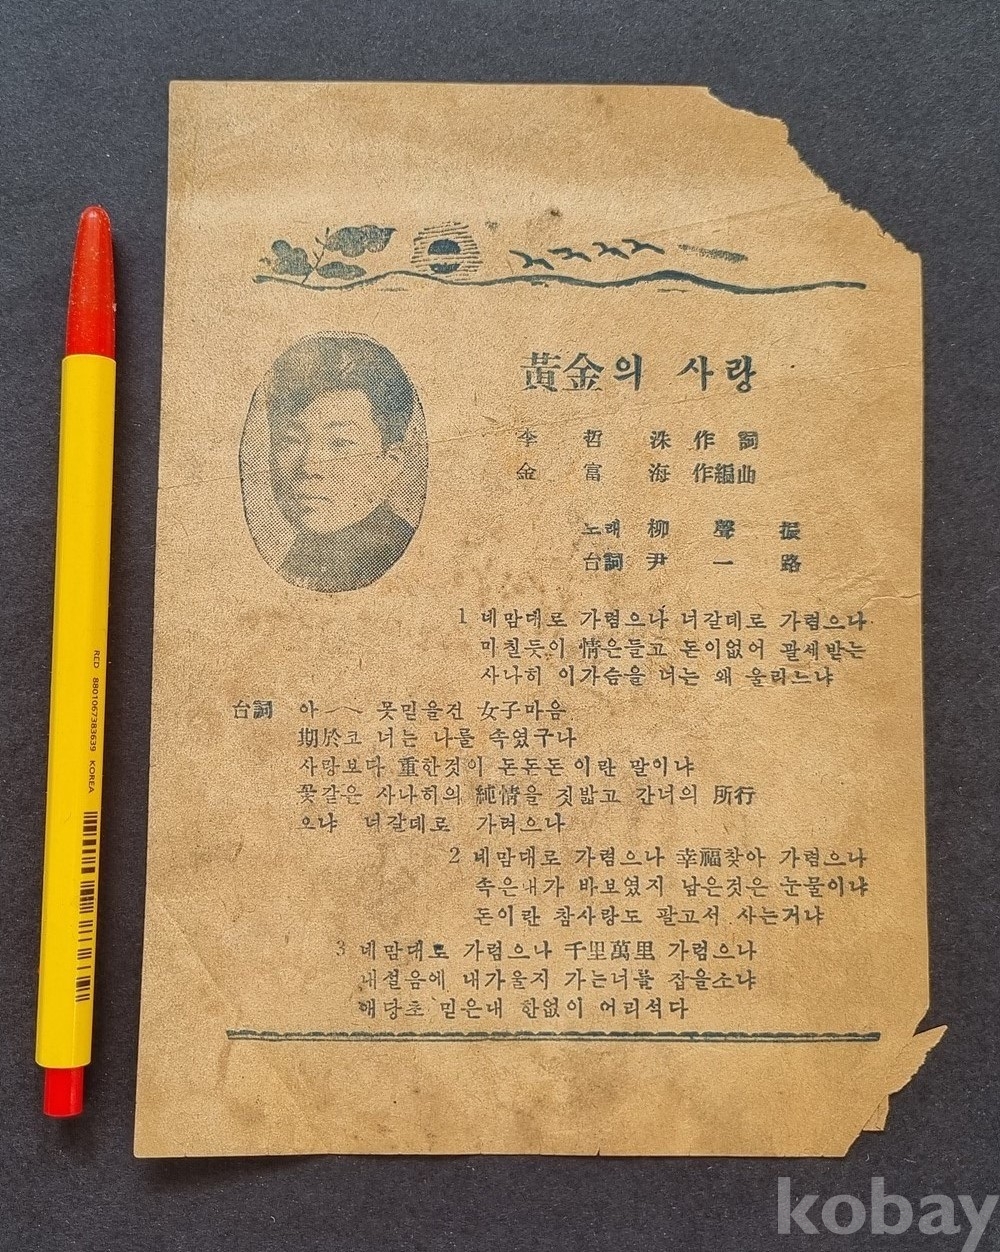 黃金의 사랑
李 哲 洙 作 詞
金 富 海 作編曲
노래 柳 聲 振
台詞 尹 一 路
1 네맘대로 가렴으나 너갈데로 가렴으나
미칠듯이 情은들고 돈이없어 괄세받는
사나히 이가슴을 너는 왜 울리느냐
台詞 아 ～ 못믿을건 女子마음
期於코 너는 나를 속였구나
사랑보다 重한것이 돈돈돈이란 말이냐
꽃같은 사나히의 純情을 짓밟고 간너의 所行
오냐 너갈데로 가려으나
2 네맘대로 가렴으나 幸福찾아 가렴으나
속은내가 바보였지 남은것은 눈물이냐
돈이란 참사랑도 팔고서 사는거냐
3 네맘대로 가렴으나 千里萬里 가렴으나
내설음에 내가울지 가는너를 잡을소냐
애당초 믿은내 한없이 어리석다
RED 8801067383639 KOREA
kobay